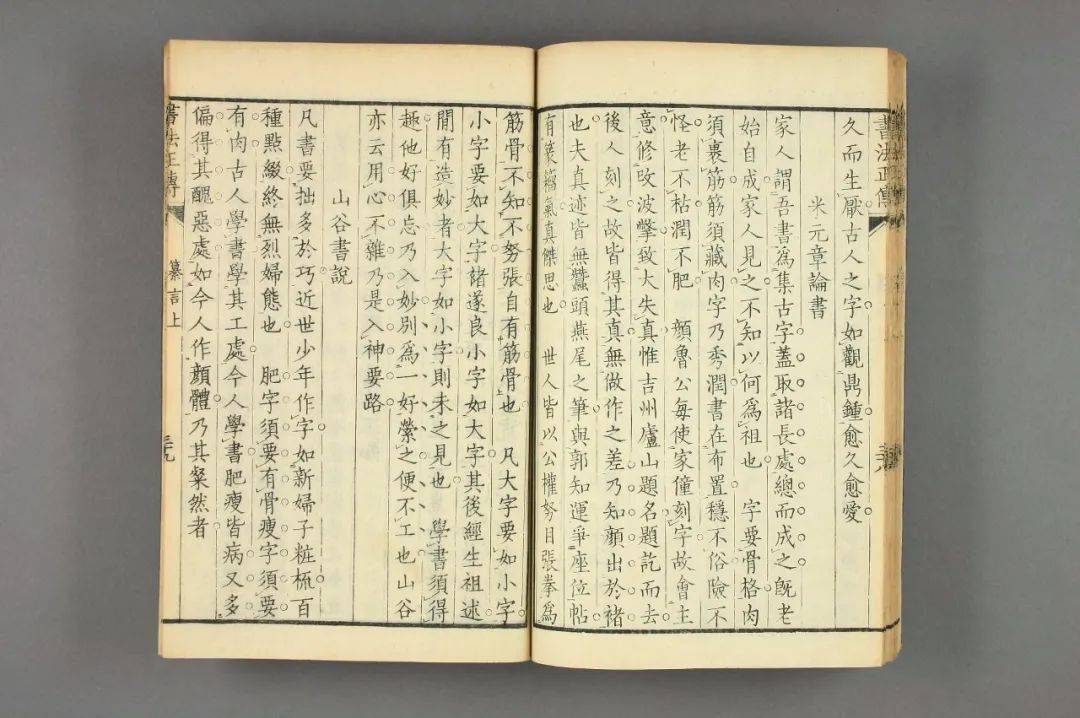 書法正傳
久而生厭古人之字如觀鼎鍾愈久愈愛
米元章論書
家人謂吾書為集古字蓋取諸長處總而成之既老
始自成家人見之不知以何為祖也　字要骨格肉
須裹筋筋須藏肉字乃秀潤書在布置穩不俗險不
怪老不枯潤不肥　顔魯公每使家僮刻字故會主
意修改波撆致大失真惟吉州廬山題名題訖而去
後人刻之故皆得其真無做作之差乃知顔出於褚
也夫真迹皆無蠶頭燕尾之筆與郭知運爭座位帖
有篆籀氣真傑思也　世人皆以公權努目張拳為
筋骨不知不努張自有筋骨也　凡大字要如小字
小字要如大字諸遂良小字如大字其後經生祖述
閒有造妙者大字如小字則未之見也　學書須得
趣他好俱忘乃入妙别為一好縈之便不工也山谷
亦云用心不雜乃是入神要路
山谷書說
凡書要拙多於巧近世少年作字如新婦子粧梳百
種點綴終無烈婦態也　肥字須要有骨瘦字須要
有肉古人學書學其工處今人學書肥瘦皆病又多
偏得其醜惡處如今人作顔體乃其粲然者
書法正傳　纂言上　三九